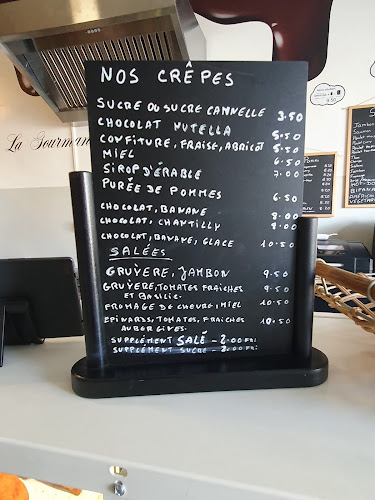 La Gourman
NOS CRÊPES
SUCRE OU SUCRE CANNELLE 3.50
CHOCOLAT NUTELLA 5.50
CONFITURE, FRAISE, ABRICOT 5.50
MIEL 6.50
SIROP D'ÉRABLE 7.00
PURÉE DE POMMES 6.50
CHOCOLAT, BANANE 8.00
CHOCOLAT, CHANTILLY 8.00
CHOCOLAT, BANANE, GLACE 10.50
SALÉES
GRUYERE, JAMBON 9.50
GRUYERE, TOMATES FRAICHES 9.50
ET BASILIC.
FROMAGE DE CHEVRE, MIEL 10.50
EPINARDS, TOMATES, FRAICHES 10.50
AUBERGINES.
SUPPLÉMENT SALÉ - 2.00 FRI
SUPPLEMENT SUCRE - 2.00 FRI